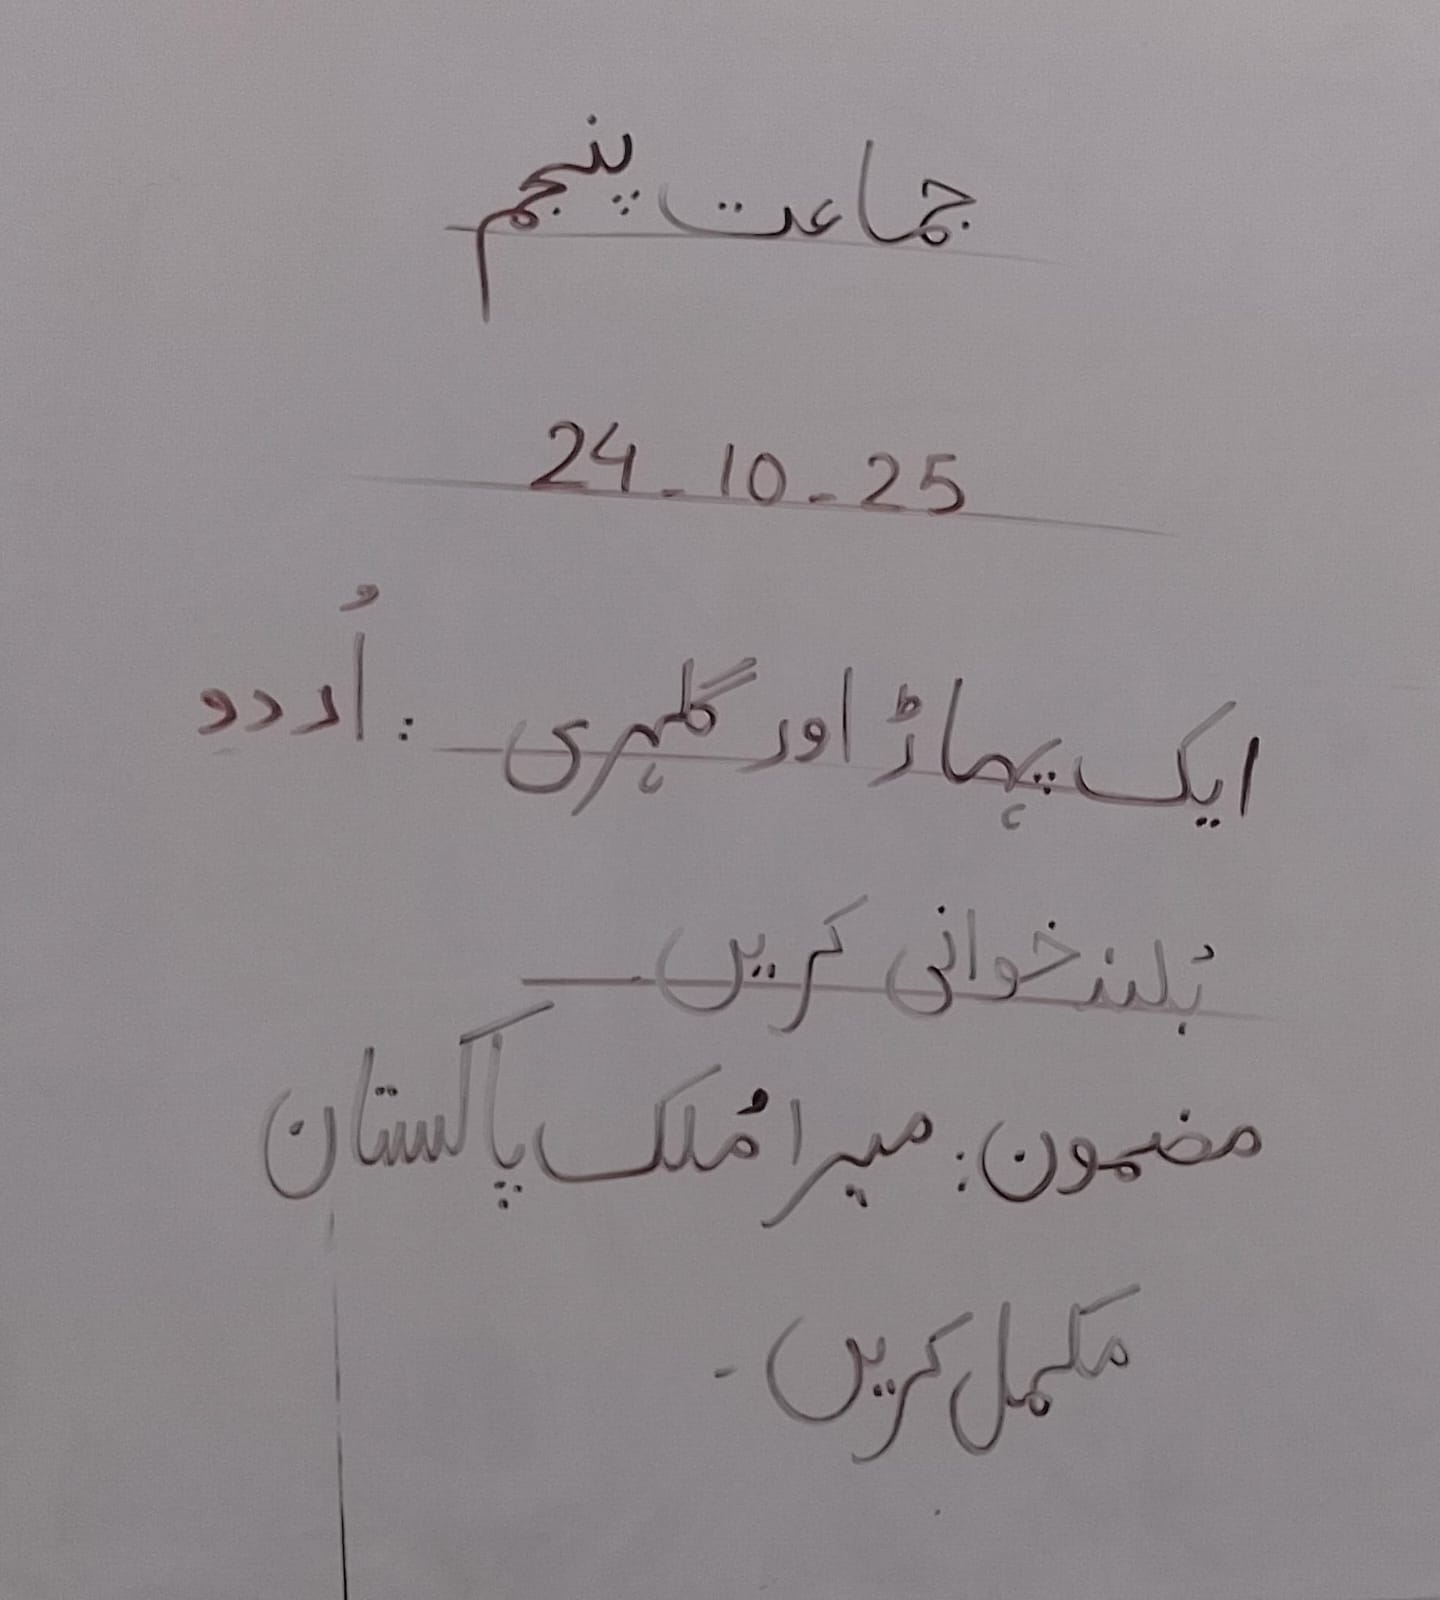 جماعت پنجم
24-10-25
ایک پہاڑ اور گلہری : اُردو
بُلند خوانی کریں۔
مضمون: میرا مُلک پاکستان
مکمل کریں۔